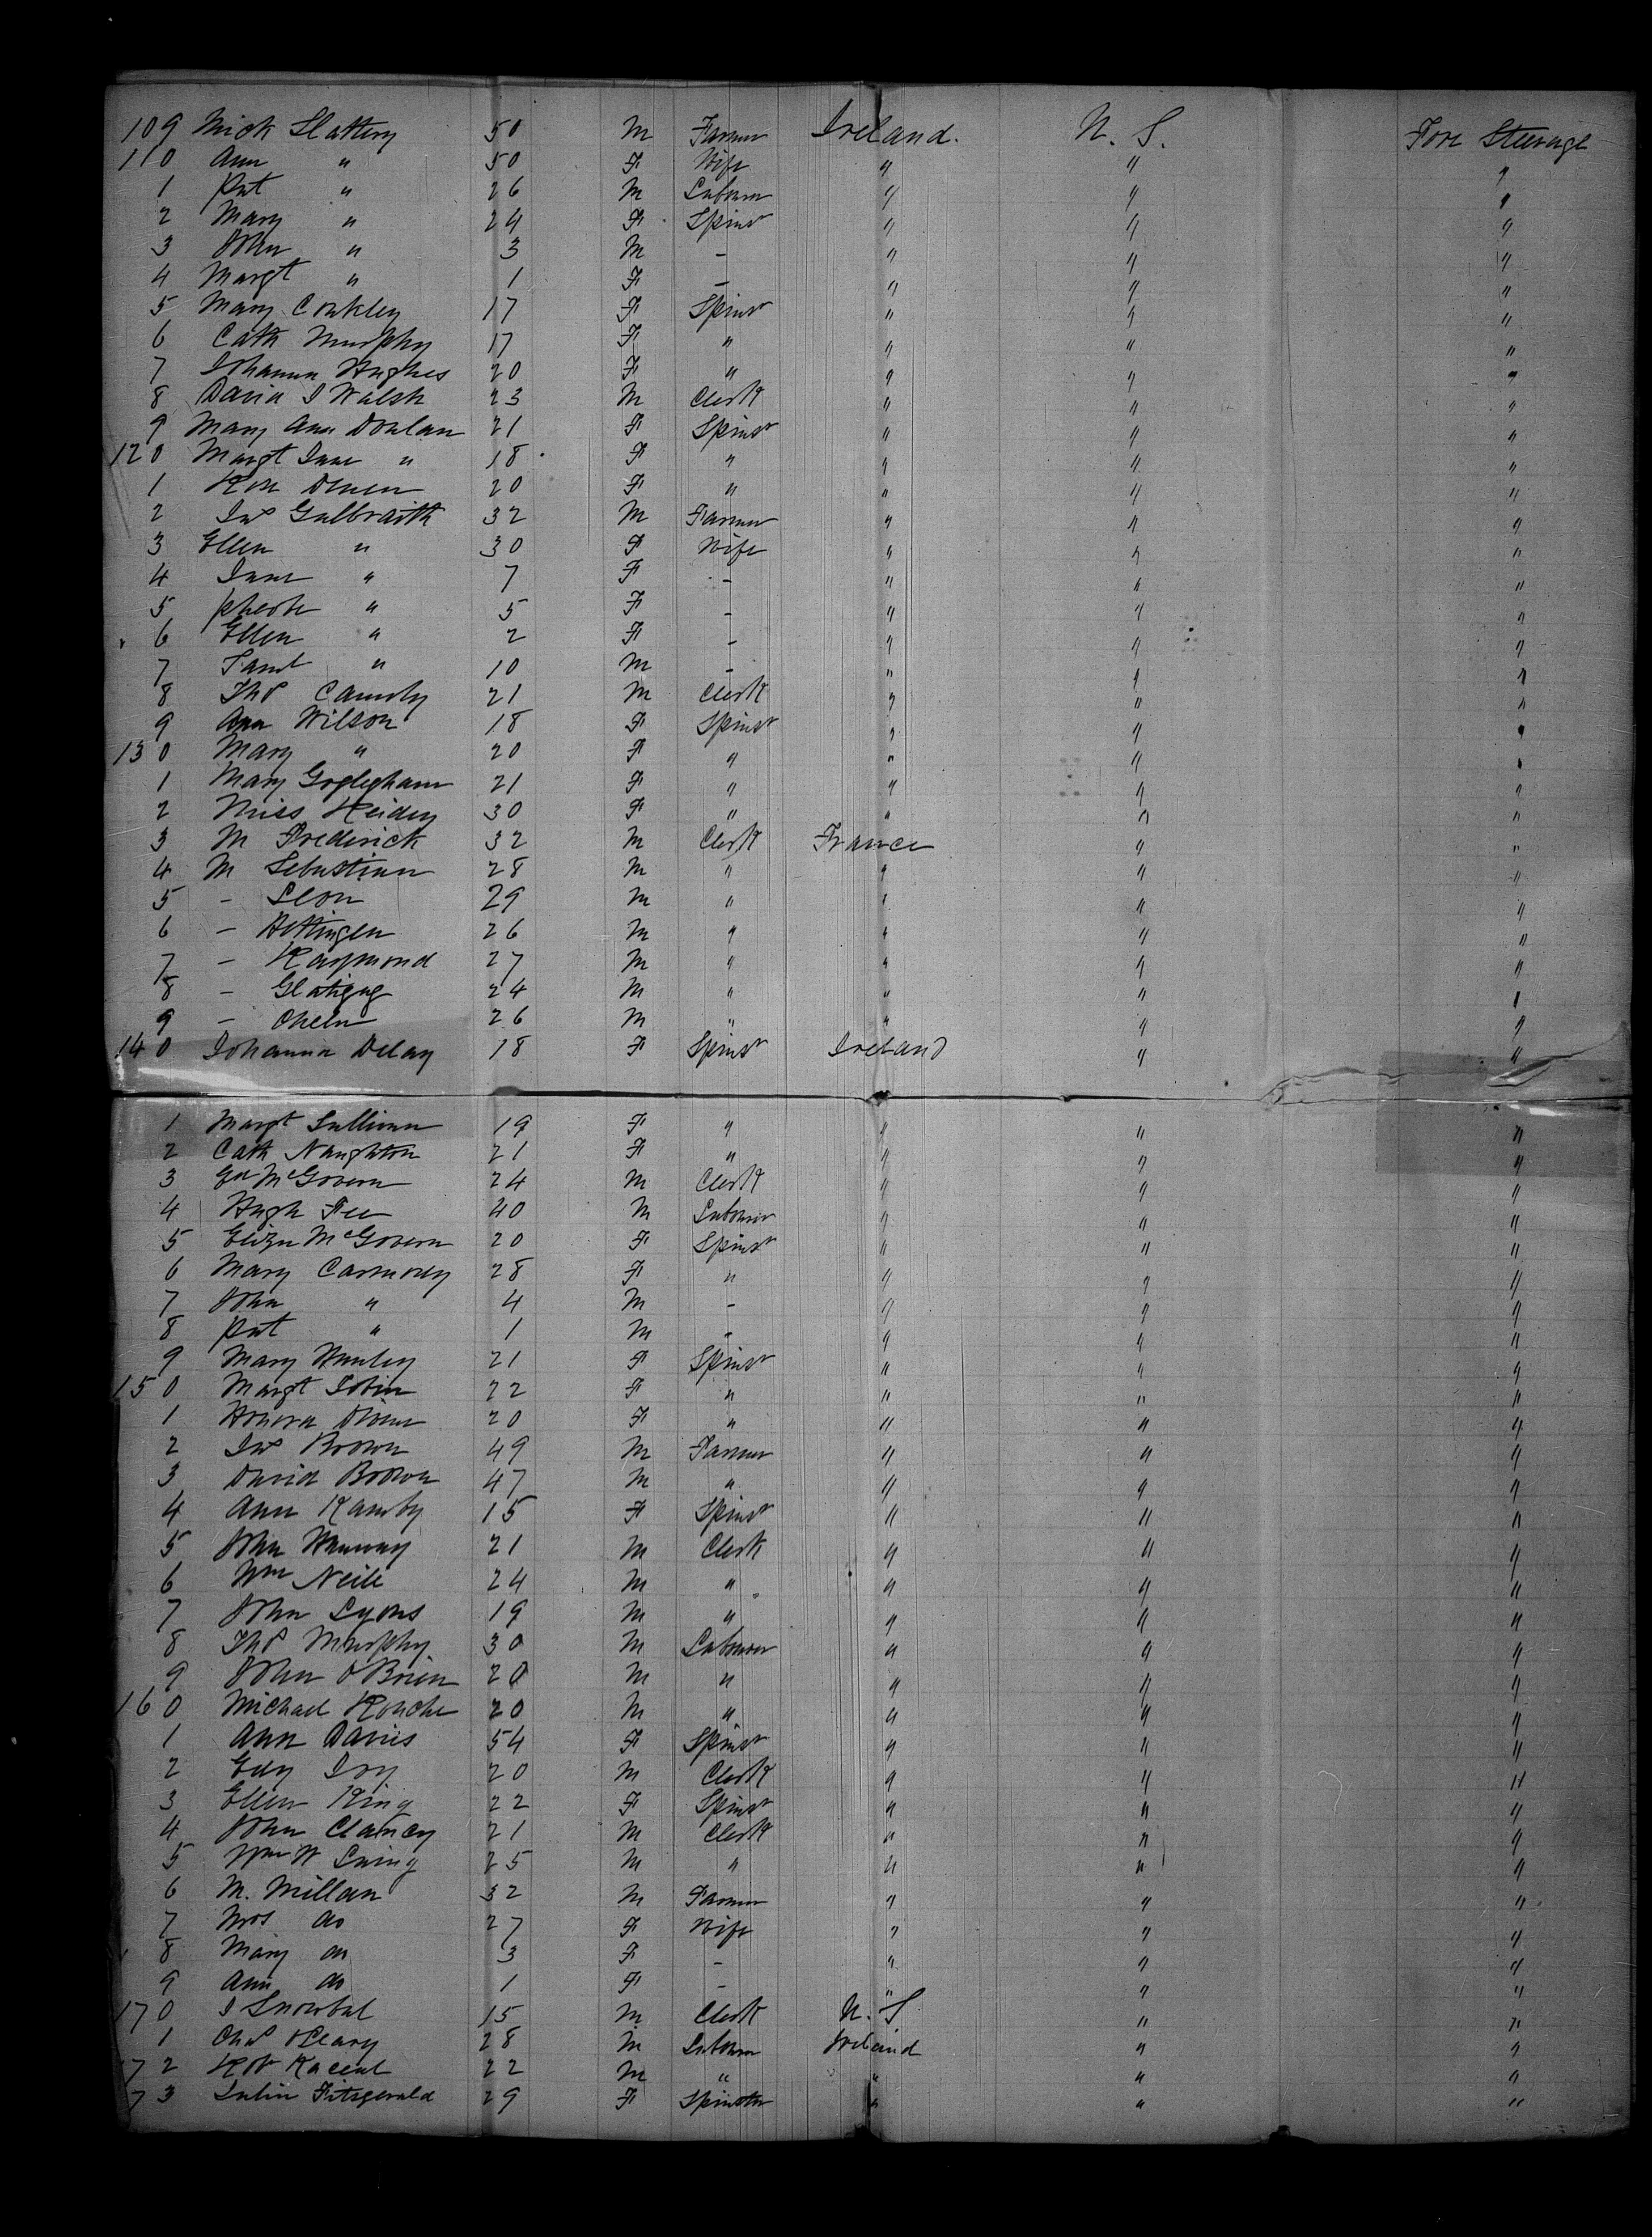 109 Mick Slattery 50 M Farmer Ireland. U. S. Fore Steerage
110 Ann " 50 F Wife " " "
1 Pat " 26 M Labourer " " "
2 Mary " 24 F Spinsr " " "
3 John " 3 M - " " "
4 Margt " 1 F - " " "
5 Mary Coakley 17 F Spinsr " " "
6 Cath Murphy 17 F " " " "
7 Johanna Hughes 20 F " " " "
8 David J Walsh 23 M Clerk " " "
9 Mary Ann Donlan 21 F Spinsr " " "
120 Margt Jane " 18 F " " " "
1 20 F " " " "
2 Jas Galbraith 32 M Farmer " " "
3 Ellen " 30 F Wife " " "
4 Jane " 7 F - " " "
5 Phebe " 5 F - " " "
6 Ellen " 2 F - " " "
7 Saml " 10 M - " " "
8 Thos 21 M Clerk " " "
9 Ann Wilson 18 F Spinsr " " "
130 Mary " 20 F " " " "
1 Mary 21 F " " " "
2 Miss 30 F " " " "
3 M Frederick 32 M Clerk France " "
4 M Sebastian 28 M " " " "
5 - Leon 29 M " " " "
6 - Hettingen 26 M " " " "
7 - Raymond 27 M " " " "
8 - Glatigny 24 M " " " "
9 - 26 M " " " "
140 Johanna Delay 18 F Spinsr Ireland " "
1 Margt Sullivan 19 F " " " "
2 Cath Naughton 21 F " " " "
3 Ed McGovern 24 M Clerk " " "
4 Hugh Fee 40 M Labourer " " "
5 Eliza McGovern 20 F Spinsr " " "
6 Mary Carmody 28 F " " " "
7 John " 4 M - " " "
8 Pat " 1 M - " " "
9 Mary Hanley 21 F Spinsr " " "
150 Margt Tobin 22 F " " " "
1 Honora 20 F " " " "
2 Jas Brown 49 M Farmer " " "
3 David Brown 47 M " " " "
4 Ann 15 F Spinsr " " "
5 John 21 M Clerk " " "
6 Wm Neill 24 M " " " "
7 John Lyons 19 M " " " "
8 Thos Murphy 30 M Labourer " " "
9 John OBrien 20 M " " " "
160 Michael Rouche 20 M " " " "
1 Ann Davis 54 F Spinsr " " "
2 20 M Clerk " " "
3 Ellen King 22 F Spinsr " " "
4 John Clancy 21 M Clerk " " "
5 Wm W Laing 25 M " " " "
6 M. Millan 32 M Farmer " " "
7 Mrs do 27 F Wife " " "
8 Mary do 3 F - " " "
9 Ann do 1 F - " " "
170 J Snowbal 15 M Clerk U. S " "
1 Chas OLeary 28 M Labourer Ireland " "
172 22 M " " " "
73 Fitzgerald 29 F Spinster " " "